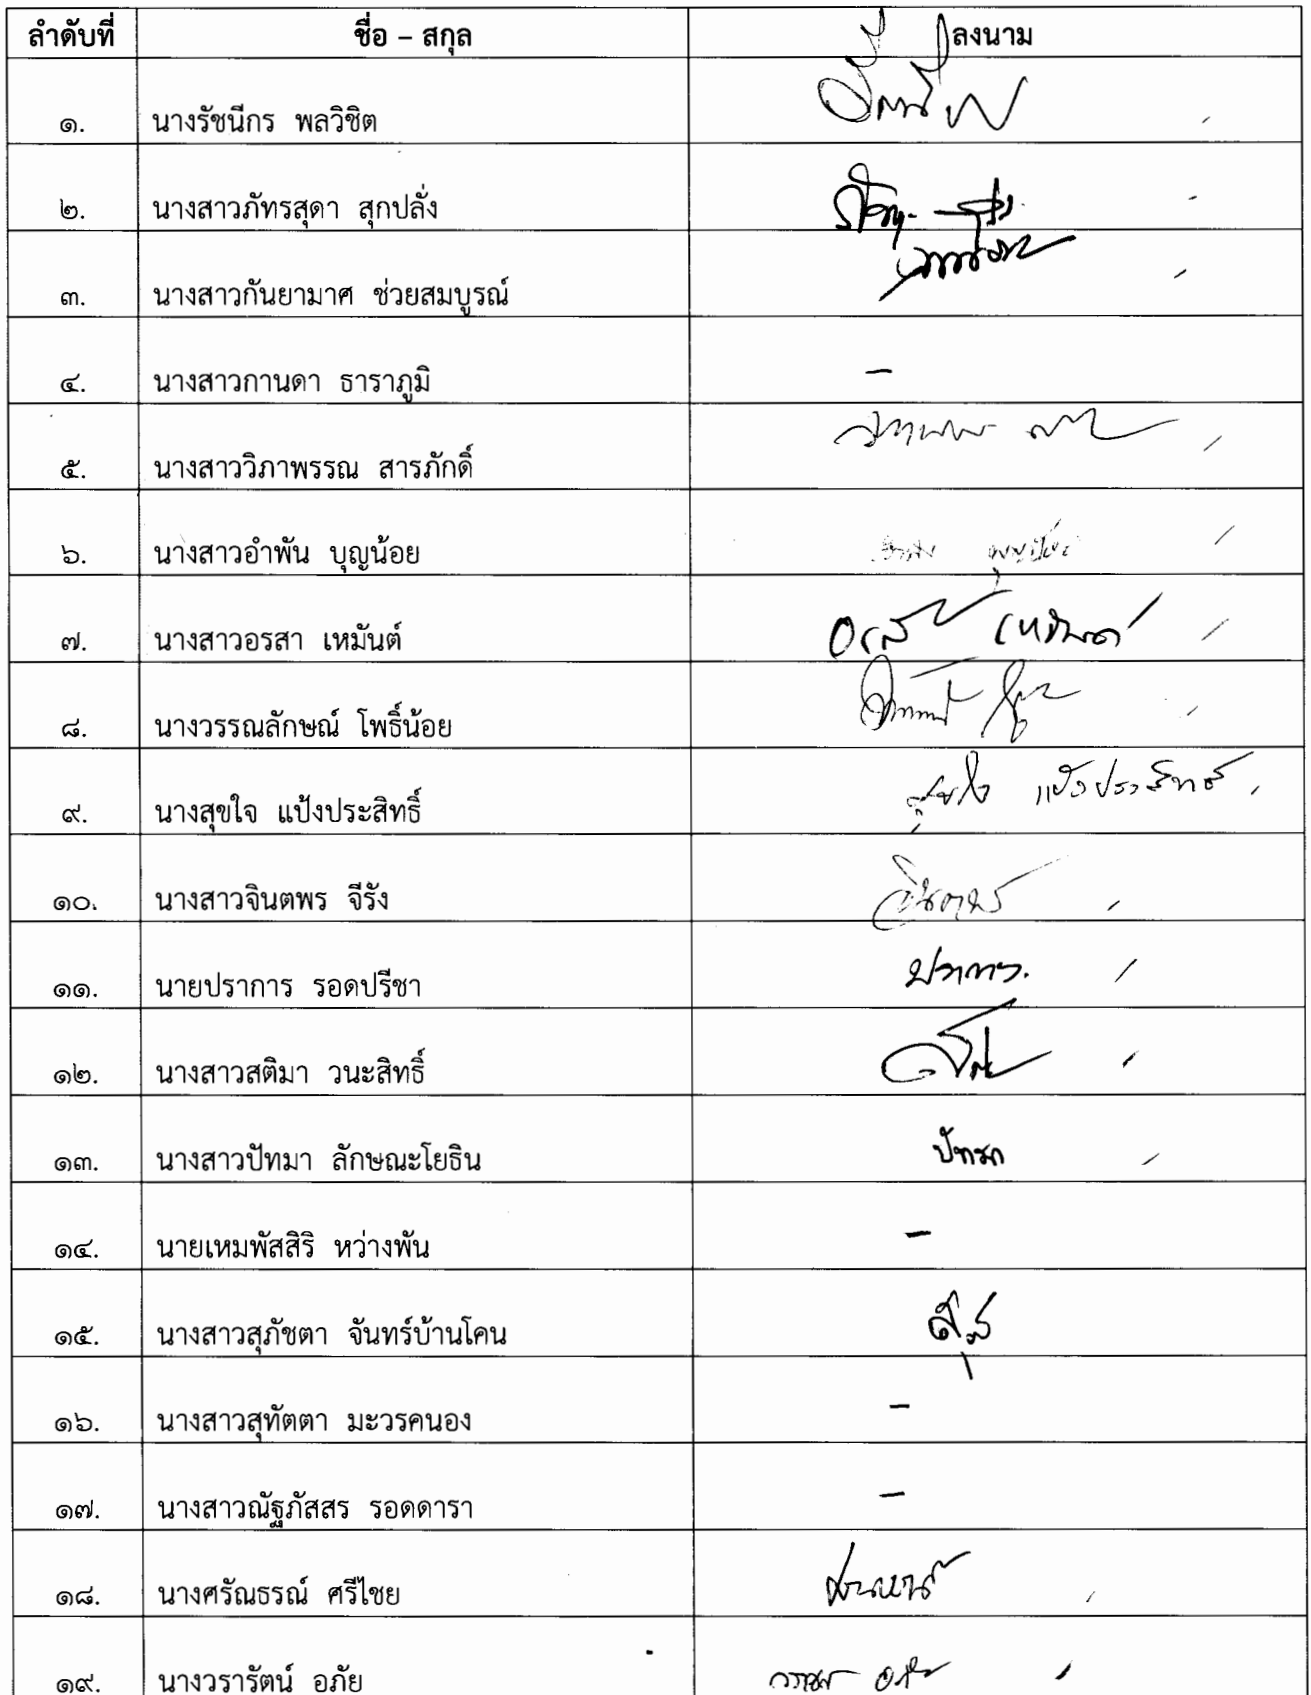 ลำดับที่ ชื่อ – สกุล ลงนาม
๑. นางรัชนีกร พลวิชิต
๒. นางสาวภัทรสุดา สุกปลั่ง
๓. นางสาวกันยามาศ ช่วยสมบูรณ์
๔. นางสาวกานดา ธาราภูมิ –
๕. นางสาววิภาพรรณ สารภักดิ์
๖. นางสาวอำพัน บุญน้อย
๗. นางสาวอรสา เหมันต์ อรสา เหมันต์
๘. นางวรรณลักษณ์ โพธิ์น้อย
๙. นางสุขใจ แป้งประสิทธิ์ สุขใจ แป้งประสิทธิ์
๑๐. นางสาวจินตพร จีรัง จินตพร
๑๑. นายปราการ รอดปรีชา ปราการ
๑๒. นางสาวสติมา วนะสิทธิ์
๑๓. นางสาวปัทมา ลักษณะโยธิน ปัทมา
๑๔. นายเหมพัสสิริ หว่างพัน –
๑๕. นางสาวสุภัชตา จันทร์บ้านโคน
๑๖. นางสาวสุทัตตา มะวรคนอง –
๑๗. นางสาวณัฐภัสสร รอดดารา –
๑๘. นางศรัณธรณ์ ศรีไชย
๑๙. นางวรารัตน์ อภัย